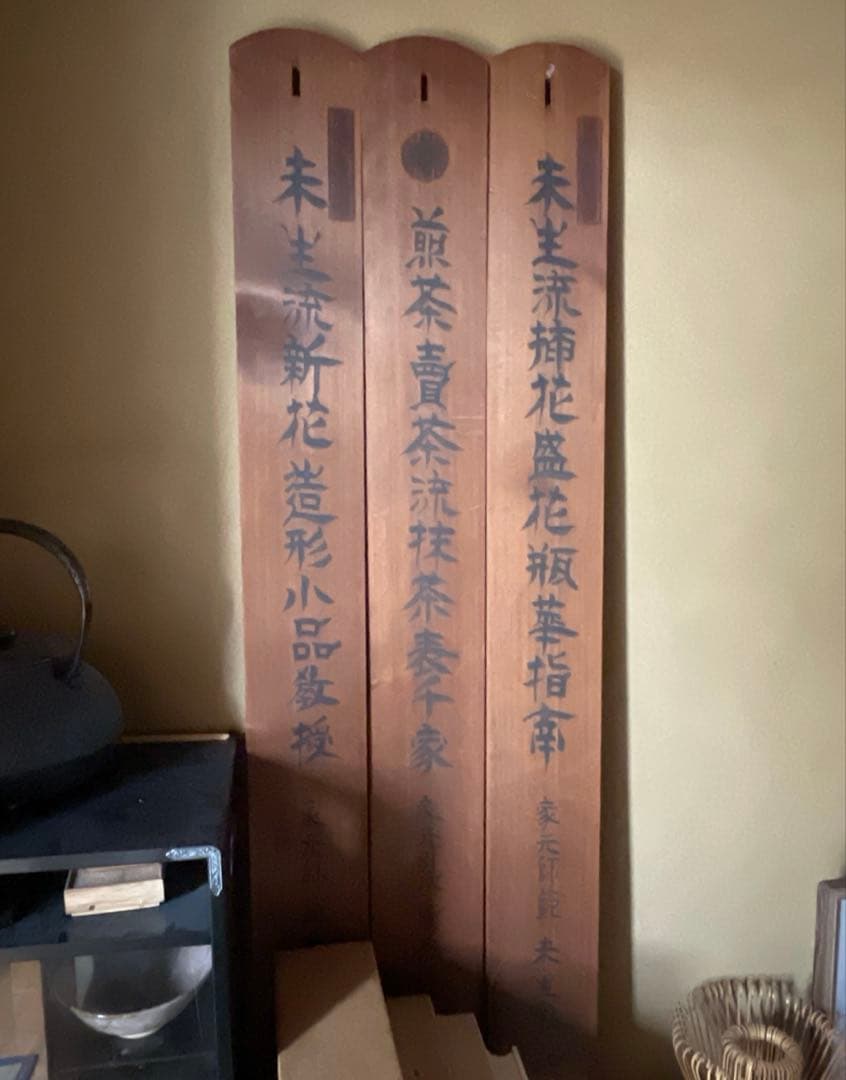 未生流挿花盛花瓶華指南
家元師範 未生
煎茶賣茶流抹茶表千家
未生流新花造形小品教授